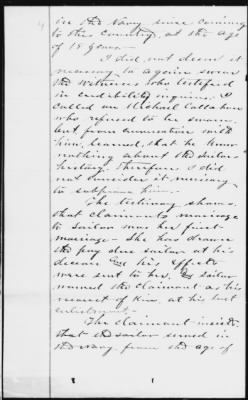 in the Navy since coming
to this country, at the age
of 18 years.
I did not deem it
necessary to again swear
the witnesses who testified
in credibility inquiries. I
called on Michael Callahan
who refused to be sworn,
but from conversation with
him, learned, that he knew
nothing about the sailors
history, therefore, I did
not consider it necessary
to subpoena him.
The testimony shows,
that claimants marriage
to sailor was her first
marriage. She has drawn
the pay due sailor at his
decease and his effects
were sent to her, sailor
named the claimant as his
nearest of Kin at his last
enlistment.
The claimant insists
that the sailor served in
the navy from the age of